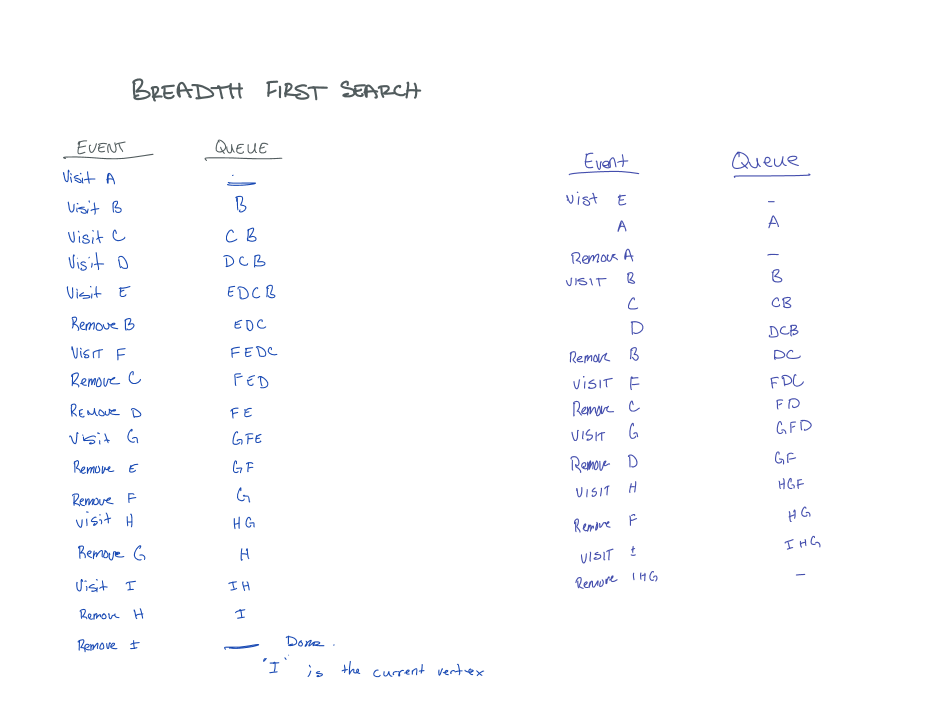 BREADTH FIRST SEARCH
EVENT QUEUE
Visit A —
Visit B B
Visit C C B
Visit D D C B
Visit E E D C B
Remove B E D C
Visit F F E D C
Remove C F E D
Remove D F E
Visit G G F E
Remove E G F
Remove F G
Visit H H G
Remove G H
Visit I I H
Remove H I
Remove I — Done.
"I" is the current vertex
Event Queue
Vist E –
A A
Remove A —
VISIT B B
C CB
D DCB
Remove B DC
VISIT F FDC
Remove C FD
VISIT G GFD
Remove D GF
VISIT H HGF
Remove F HG
VISIT I IHG
Remove IHG —